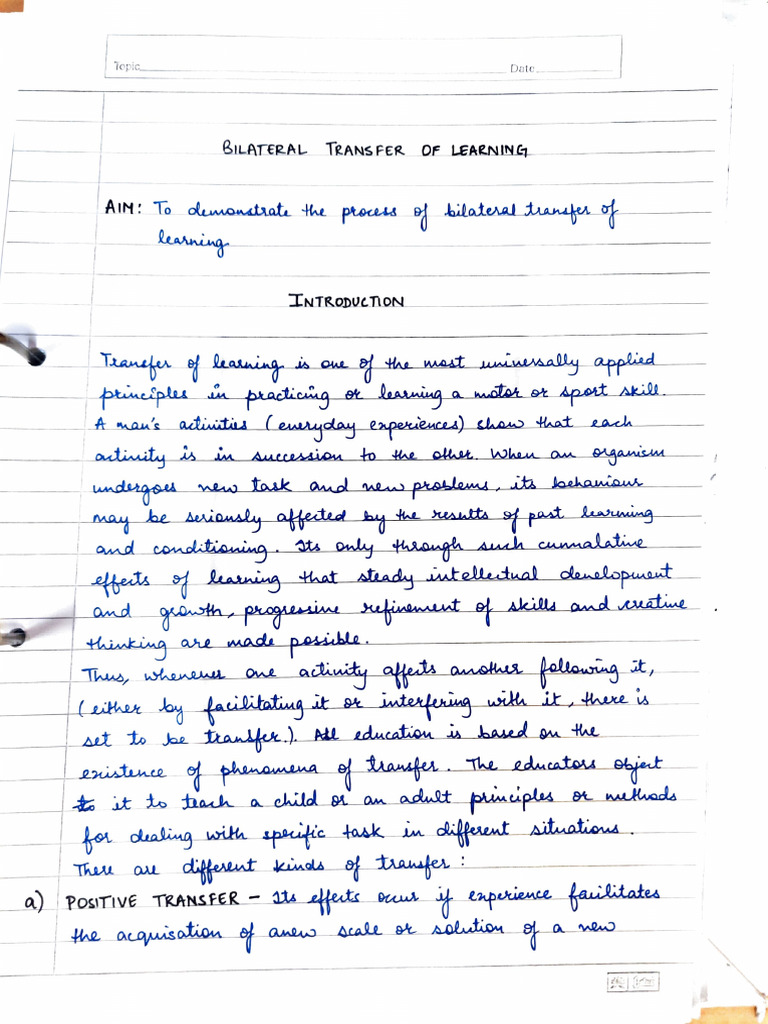 Topic Date
BILATERAL TRANSFER OF LEARNING
AIM: To demonstrate the process of bilateral transfer of
learning
INTRODUCTION
Transfer of learning is one of the most universally applied
principles in practicing or learning a motor or sport skill.
A man's activities (everyday experiences) show that each
activity is in succession to the other. When an organism
undergoes new task and new problems, its behaviour
may be seriously affected by the results of past learning
and conditioning. Its only through such cummalative
effects of learning that steady intellectual development
and growth, progressive refinement of skills and creative
thinking are made possible.
Thus, whenever one activity affects another following it,
(either by facilitating it or interfering with it, there is
set to be transfer.). All education is based on the
existence of phenomena of transfer. The educators object
to it to teach a child or an adult principles or methods
for dealing with specific task in different situations.
There are different kinds of transfer:
a) POSITIVE TRANSFER - Its effects occur if experience facilitates
the acquisation of anew scale or solution of a new